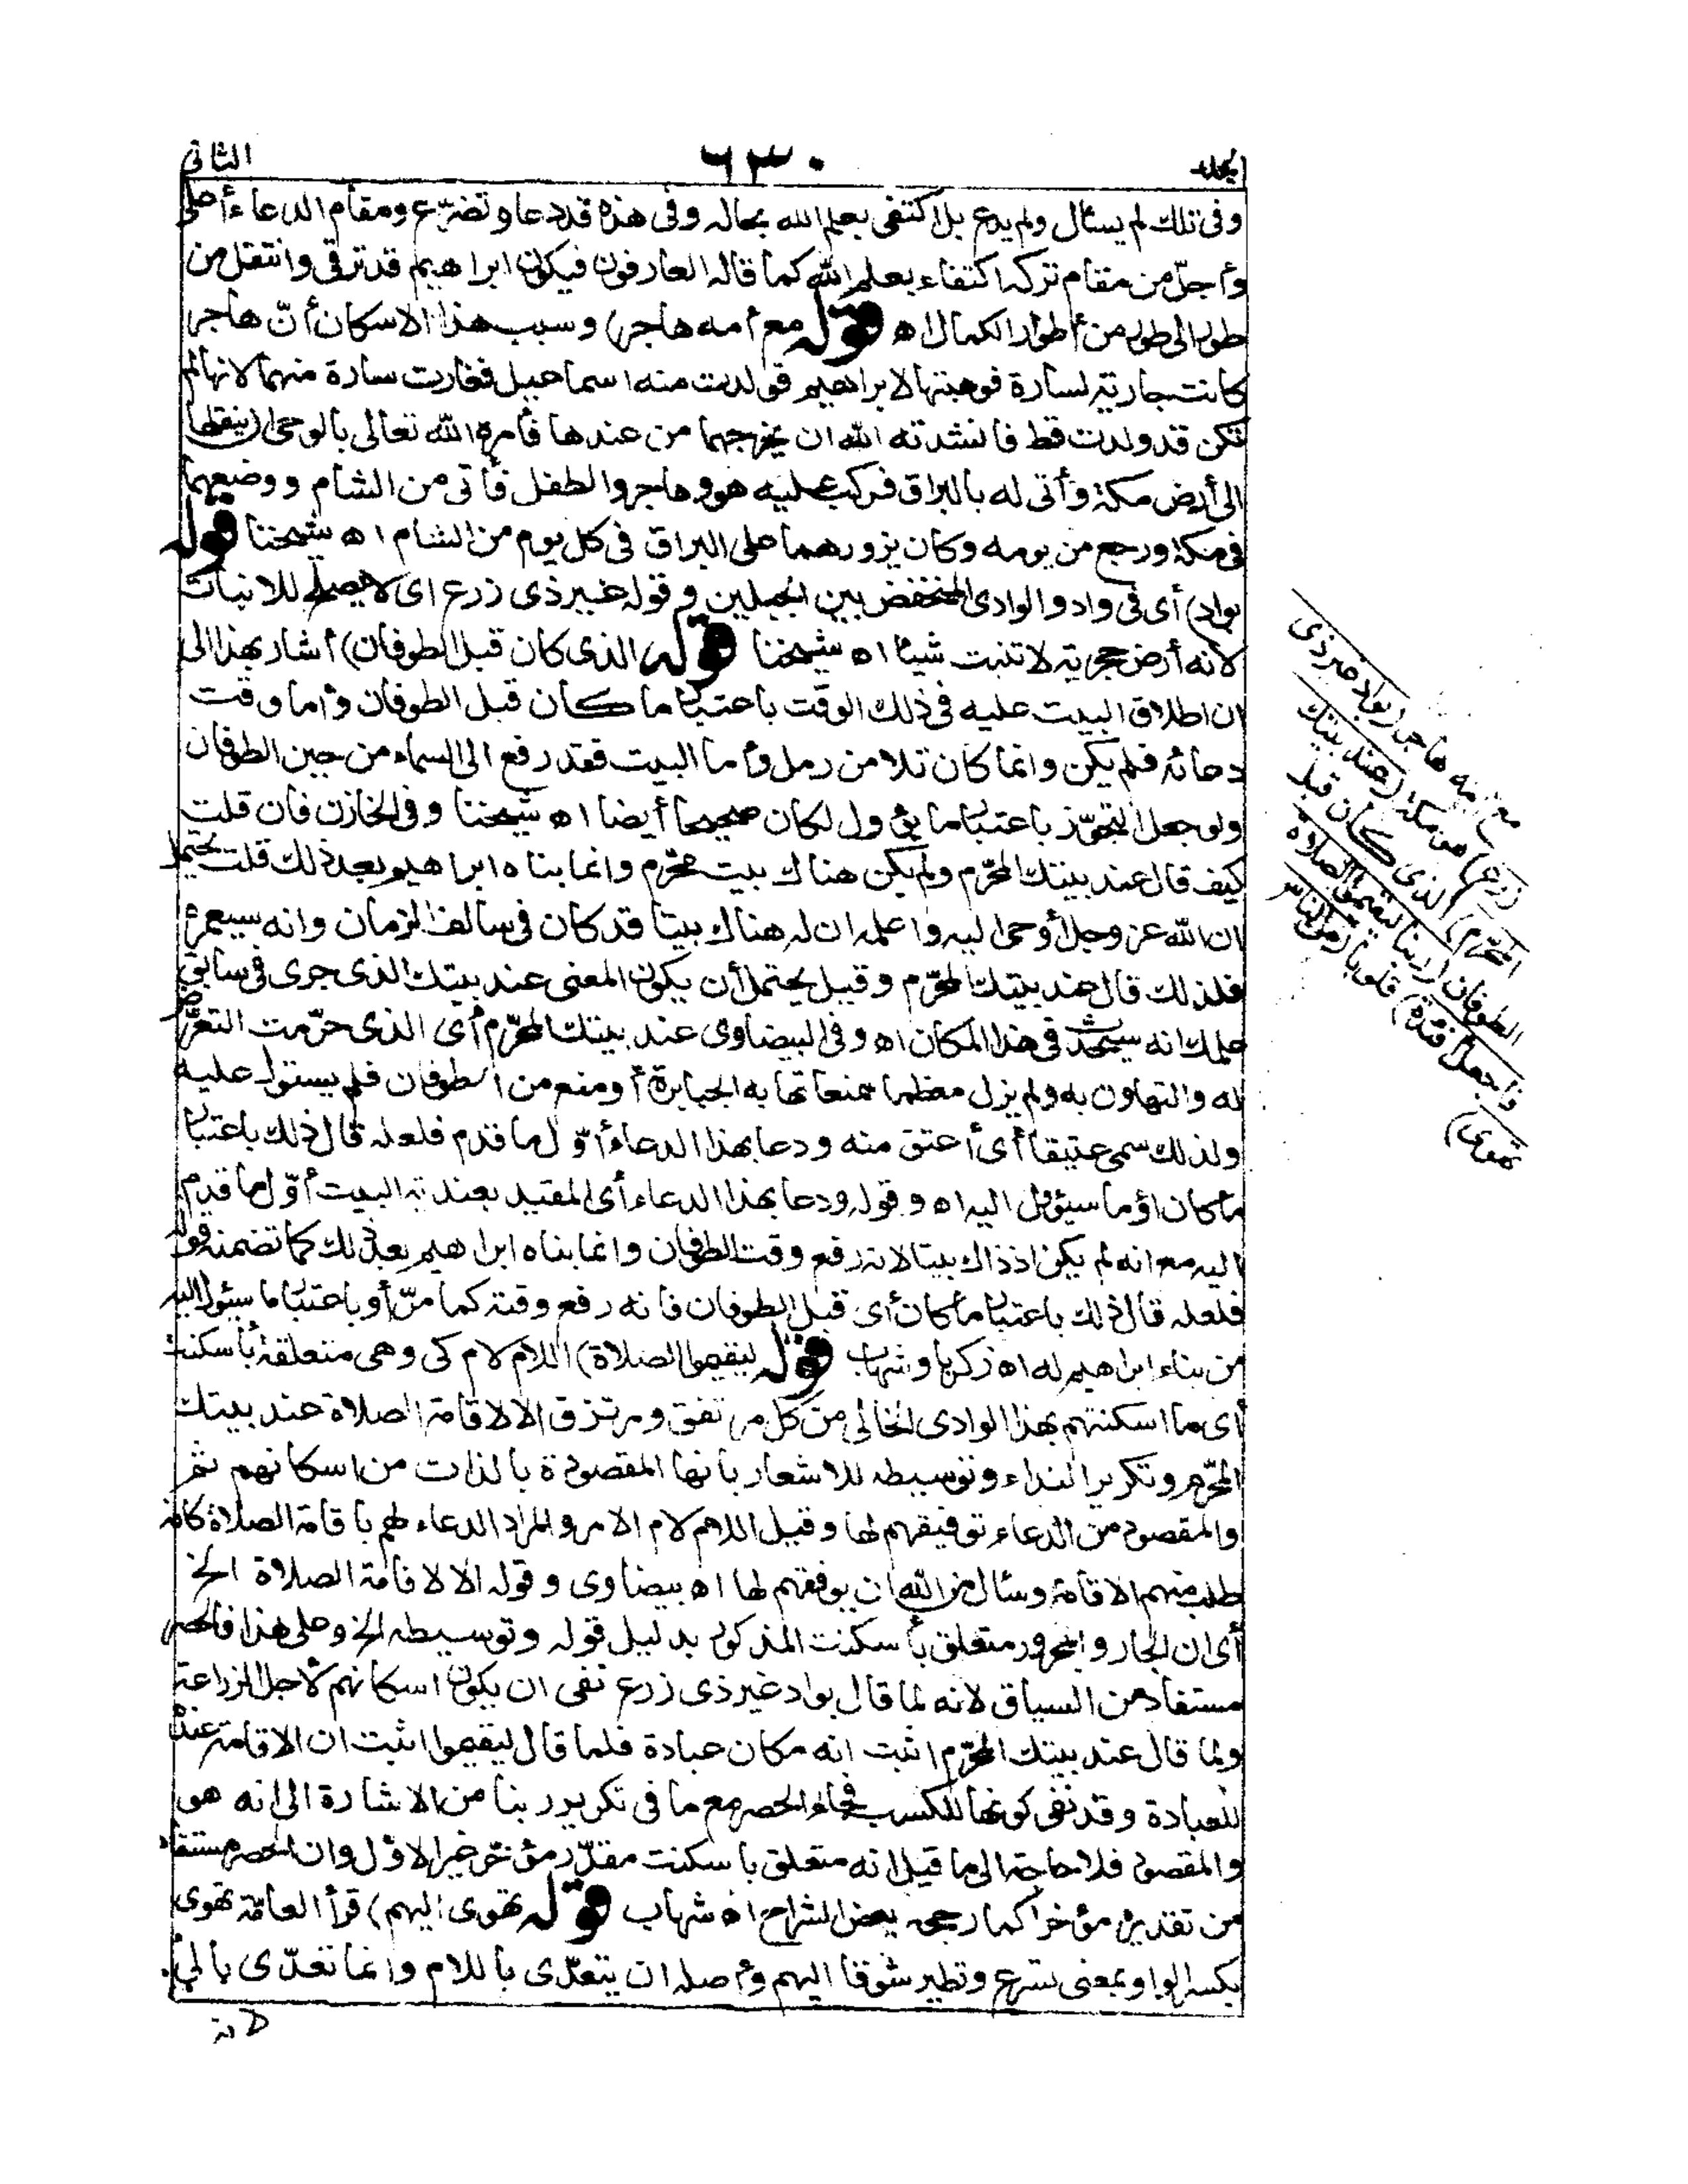 المجلد ٦٣٠ الثانى
وفى تلك لم يسئال ولم يدع بل اكتفى بعلم الله بحاله وفى هذه قد دعا وتضرّع ومقام الدعاء أعلى
وأجلّ من مقام تركه اكتفاء بعلم الله كما قاله العارفون فيكون ابراهيم قد ترقى وانتقل من
طور الى طور من أطوار الكمال اه قوله مع أمه هاجر) وسبب هذا الاسكان أنّ هاجر
كانت جارية لسارة فوهبتها لابراهيم فولدت منه اسماعيل فغارت سارة منهما لانها لم
تكن قد ولدت قط فانشدته الله ان يخرجهما من عندها فأمره الله تعالى بالوحى ان ينقلهما
الى أرض مكة وأتى له بالبراق فركب عليه هو وهاجر والطفل فأتى من الشام ووضعهما
فى مكة ورجع من يومه وكان يزورهما على البراق فى كل يوم من الشام اه شيخنا قوله
بواد) أى فى واد والوادى المنخفض بين الجبلين وقوله غير ذى زرع اى لا يصلح للانبات
لانه أرض حجرية لا تنبت شيئا اه شيخنا قوله الذى كان قبل الطوفان) أشار بهذا الى
ان اطلاق البيت عليه فى ذلك الوقت باعتبار ما كان قبل الطوفان وأما وقت
دعائه فلم يكن وانما كان تلا من رمل وأما البيت فقد رفع الى السماء من حين الطوفان
ولو جعل التجوّز باعتبار ما يئول لكان صحيحا أيضا اه شيخنا وفى الخازن فان قلت
كيف قال عند بيتك المحرّم ولم يكن هناك بيت محرّم وانما بناه ابراهيم بعد ذلك قلت يحتمل
ان الله عز وجل أوحى اليه واعلمه ان له هناك بيتا قد كان فى سالف الزمان وانه سيعمره
فلذلك قال عند بيتك المحرّم وقيل يحتمل أن يكون المعنى عند بيتك الذى جرى فى سابق
علمك انه سيحدث فى هذا المكان اه وفى البيضاوى عند بيتك المحرّم أى الذى حرّمت التعرّض
له والتهاون به ولم يزل معظما ممنعا تهابه الجبابرة أو منع من الطوفان فلم يستول عليه
ولذلك سمى عتيقا أى أعتق منه ودعا بهذا الدعاء أوّل ما قدم فلعله قال ذلك باعتبار
ما كان أو ما سيئول اليه اه وقوله ودعا بهذا الدعاء أى المقيد بعندية البيت أوّل ما قدم
اليه مع انه لم يكن اذ ذاك بيتا لانه رفع وقت الطوفان وانما بناه ابراهيم بعد ذلك كما تضمنه قوله
فلعله قال ذلك باعتبار ما كان أى قبل الطوفان فانه رفع وقته كما مرّ أو باعتبار ما سيئول اليه
من بناء ابراهيم له اه زكريا وشهاب قوله ليقيموا الصلاة) اللام لام كى وهى متعلقة بأسكنت
أى ما اسكنتهم بهذا الوادى الخالى من كل مرتفق ومرتزق الا لاقامة الصلاة عند بيتك
المحرّم وتكرير النداء وتوسيطه للاشعار بأنها المقصودة بالذات من اسكانهم ثم
والمقصود من الدعاء توفيقهم لها وقيل اللام لام الامر والمراد الدعاء لهم باقامة الصلاة كانه
طلب منهم الاقامة وسأل من الله ان يوفقهم لها اه بيضاوى وقوله الا لاقامة الصلاة الخ
أى ان الجار والمجرور متعلق بأسكنت المذكور بدليل قوله وتوسيطه الخ وعلى هذا فالحصر
مستفاد من السياق لانه لما قال بواد غير ذى زرع نفى ان يكون اسكانهم لأجل الزراعة
ولما قال عند بيتك المحرّم اثبت انه مكان عبادة فلما قال ليقيموا اثبت ان الاقامة عنده
للعبادة وقد نفى كونها للكسب فجاء الحصر مع ما فى تكرير ربنا من الاشارة الى انه هو
والمقصود فلا حاجة الى ما قيل انه متعلق باسكنت مقدّر مؤخّر غير الاوّل وان الحصر مستفاد
من تقديره مؤخرا كما رجحه بعض الشراح اه شهاب قوله تهوى اليهم) قرأ العامّة تهوى
بكسر الواو بمعنى تسرع وتطير شوقا اليهم وأصله ان يتعدّى باللام وانما تعدّى بالى
لانه
مع أمه هاجر (بواد غير ذى
زرع) هو مكة (عند بيتك
المحرّم) الذى كان قبل
الطوفان (ربنا ليقيموا الصلاة
فاجعل أفئدة) قلوبا (من الناس
تهوى)